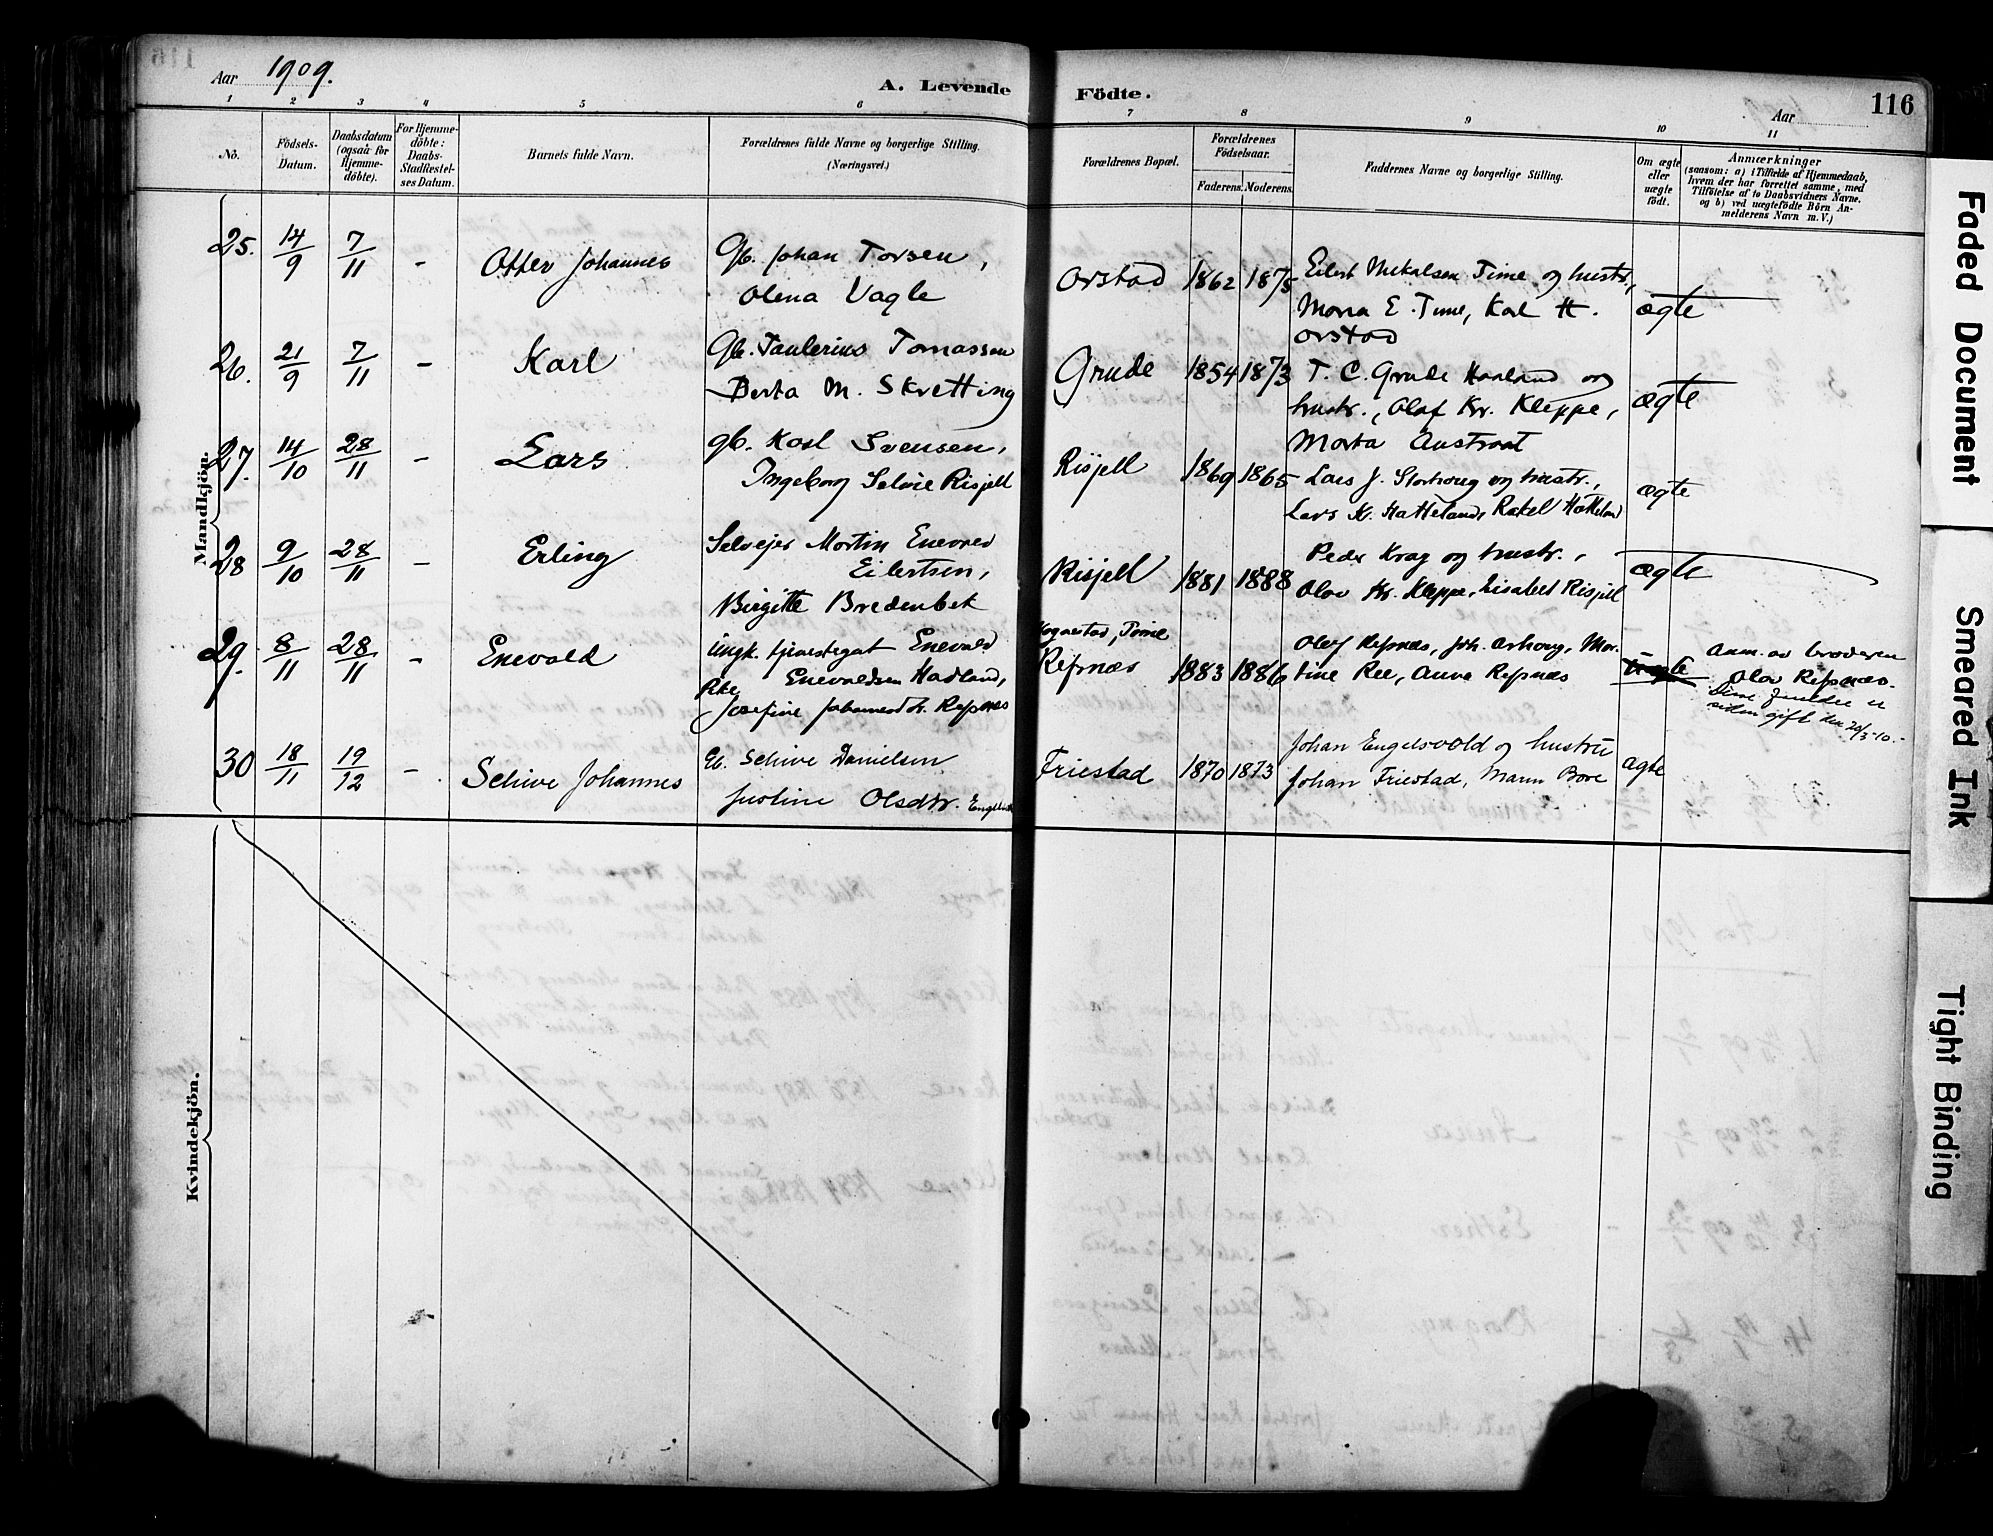 Aar 1909.
A. Levende Födte.
Aar
116
1 2 3 4 5 6 7 8 9 10 11
No.
Födsels-Datum.
Daabsdatum (ogsaa for Hjemme-döbte).
For Hjemme-döbte: Daabs-Stadfæstel-ses Datum.
Barnets fulde Navn.
Forældrenes fulde Navne og borgerlige Stilling.
(Næringsvei.)
Forældrenes Bopæl.
Forældrenes Födselsaar.
Faderens. Moderens.
Faddernes Navne og borgerlige Stilling.
Om ægte eller uægte født.
Anmærkninger
(saasom: a) i Tilfælde af Hjemmedaab,
hvem der har forrettet samme, med
Tilföielse af to Daabsvidners Navne.
og b) ved uægtefödte Börn An-
melderens Navn m. V.)
Mandkjön.
25. 14/9 7/11 - Otter Johannes
Gb. Johan Torsen,
Olena Vagle
Orstad 1862 1875
Eilert Mikalsen Time og hustr.,
Maria E. Time, Karl H.
Orstad
ægte
26. 21/9 7/11 - Karl
Gb. Taulerius Tomassen
Berta M. Skretting
Grude 1854 1873
T. C. Grude Haaland og
hustr., Olaf Kr. Kleppe,
Marta Austraat
ægte
27. 14/10 28/11 - Lars
gb. Karl Svensen,
Ingeborg Selvie Risjell
Risjell 1869 1865
Lars J. Storhoug og hustr.,
Lars K. Hatteland, Rakel Hatteland
ægte
28 9/10 28/11 - Erling
Selvejer Martin Enevald
Eilertsen,
Birgitte Bredenbek
Risjell 1881 1888
Peder Krag og hustr.,
Olav Kr. Kleppe, Lisabet Risjell
ægte
29. 8/11 28/11 - Enevald
ungk. tjenestegut Enevald
Enevaldsen Hadland,
Pike Josefine Johannesdtr. Refsnes
Hognestad, Time
Refsnæs 1883 1886
Olaf Refsnæs, Joh. Arhoug, Mar-
tine Ree, Anna Refsnæs
uægte
Anm. av broderen
Olav Refsnæs.
Disse forældre er
siden gift den 20/3-10.-
30 18/11 19/12 - Schive Johannes
Gb. Schive Danielsen
Justine Olsdtr.
Friestad 1870 1873
Johan Engelsvold og hustru
Johan Friestad, Marin Bore
ægte
Kvindekjön.
Faded Document
Smeared Ink
Tight Binding